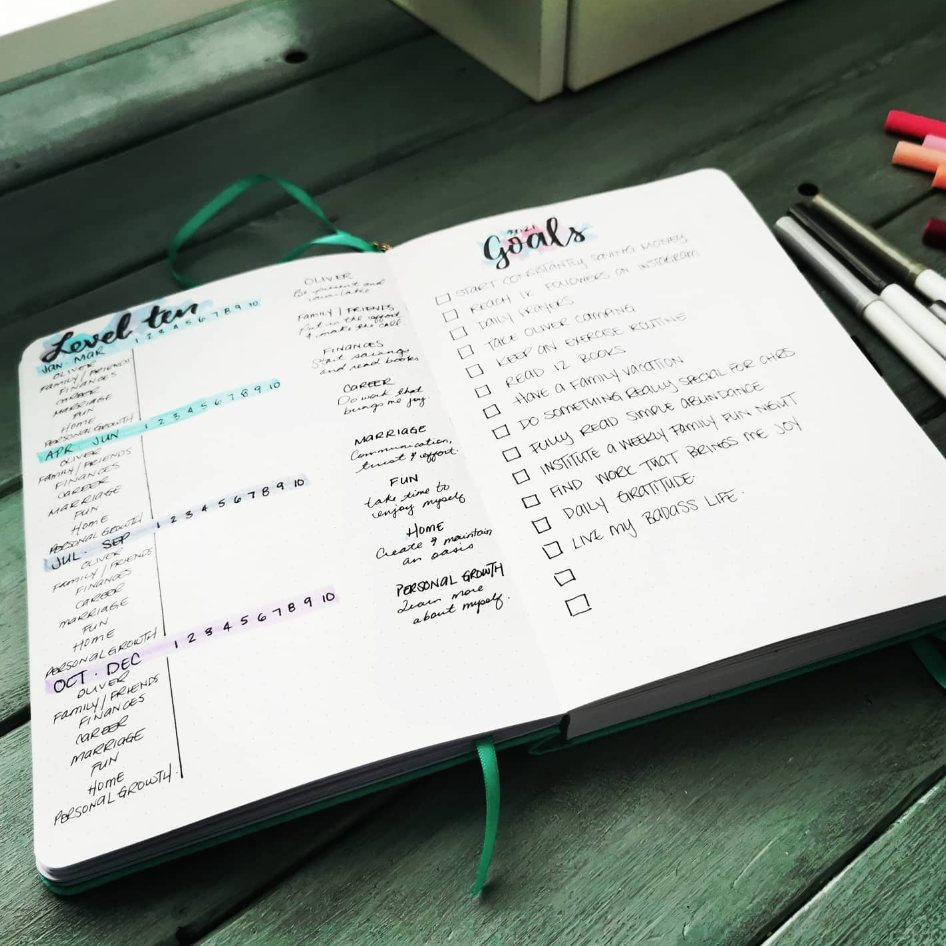 Level ten
JAN MAR 1 2 3 4 5 6 7 8 9 10
OLIVER
FAMILY/FRIENDS
FINANCES
CAREER
MARRIAGE
FUN
HOME
PERSONAL GROWTH
APR · JUN 1 2 3 4 5 6 7 8 9 10
OLIVER
FAMILY/FRIENDS
FINANCES
CAREER
MARRIAGE
FUN
HOME
PERSONAL GROWTH
JUL · SEP 1 2 3 4 5 6 7 8 9 10
OLIVER
FAMILY/FRIENDS
FINANCES
CAREER
MARRIAGE
FUN
HOME
PERSONAL GROWTH
OCT · DEC 1 2 3 4 5 6 7 8 9 10
OLIVER
FAMILY/FRIENDS
FINANCES
CAREER
MARRIAGE
FUN
HOME
PERSONAL GROWTH
OLIVER
Be present and
available
FAMILY/FRIENDS
Put in the effort
& make the call
FINANCES
Start savings
and read books
CAREER
Do work that
brings me joy
MARRIAGE
Communication,
trust & effort.
FUN
take time to
enjoy myself
HOME
Create & maintain
an oasis
PERSONAL GROWTH
Learn more
about myself.
2021
Goals
START CONSTANTLY SAVING MONEY
REACH 1K FOLLOWERS ON INSTAGRAM
DAILY PRAYERS
TAKE OLIVER CAMPING
KEEP AN EXERCISE ROUTINE
READ 12 BOOKS
HAVE A FAMILY VACATION
DO SOMETHING REALLY SPECIAL FOR CHRIS
FULLY READ SIMPLE ABUNDANCE
INSTITUTE A WEEKLY FAMILY FUN NEWT
FIND WORK THAT BRINGS ME JOY
DAILY GRATITUDE.
LIVE MY BADASS LIFE.